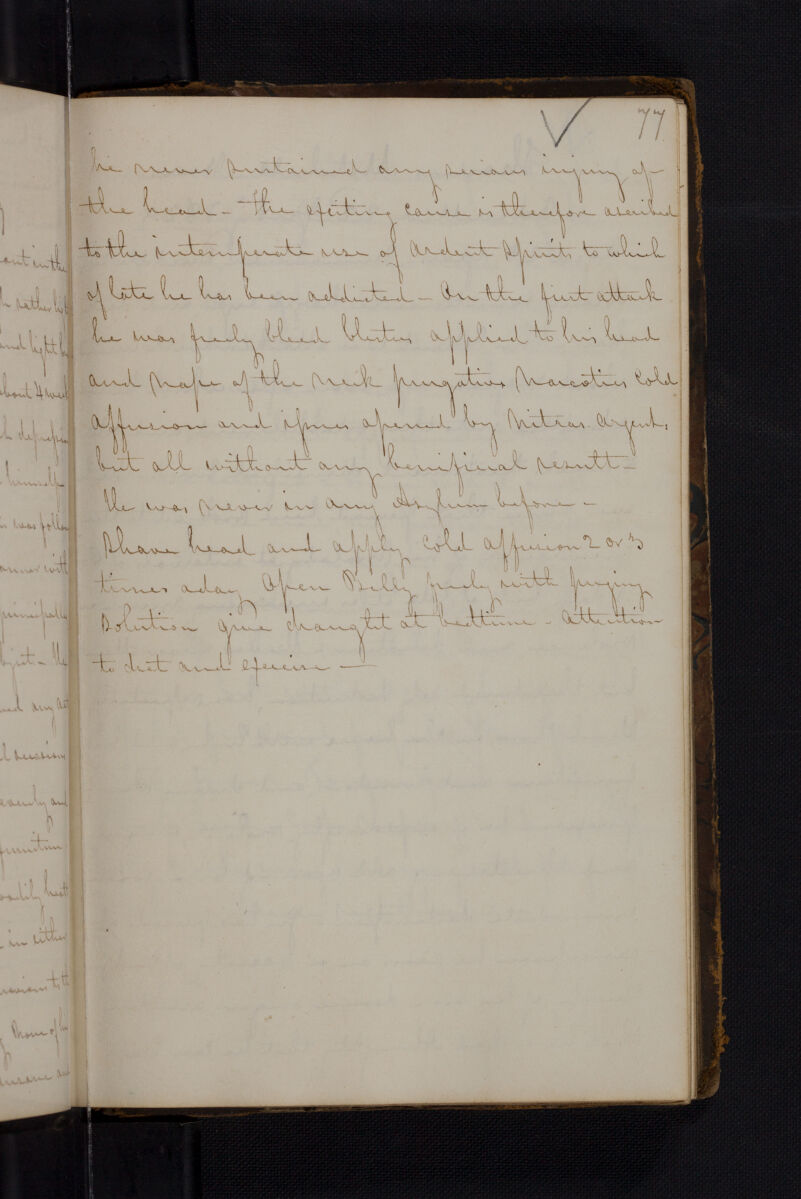 77
he never sustained any serious injury of
the head - The exciting cause is therefore ascribed
to the intemperate use of ardent spirits to which
of late he has been addicted - On the first attack
he was freely bleed blisters applied to his head
and nape of the neck purgatives Narcotics Cold
affusion and issues opened by Nitras Argent.
but all without any benificial result -
He was never in any Asylum before -
Shave head and apply cold affusion 2 or 3
times aday Open Belly freely with purging
Solution give draught at bedtime - attention
to diet and exercise -
ant in the
rather
and light
about 4 week
himself
was follow
manner with
principally
any
and
in either
to the
None of his
insane